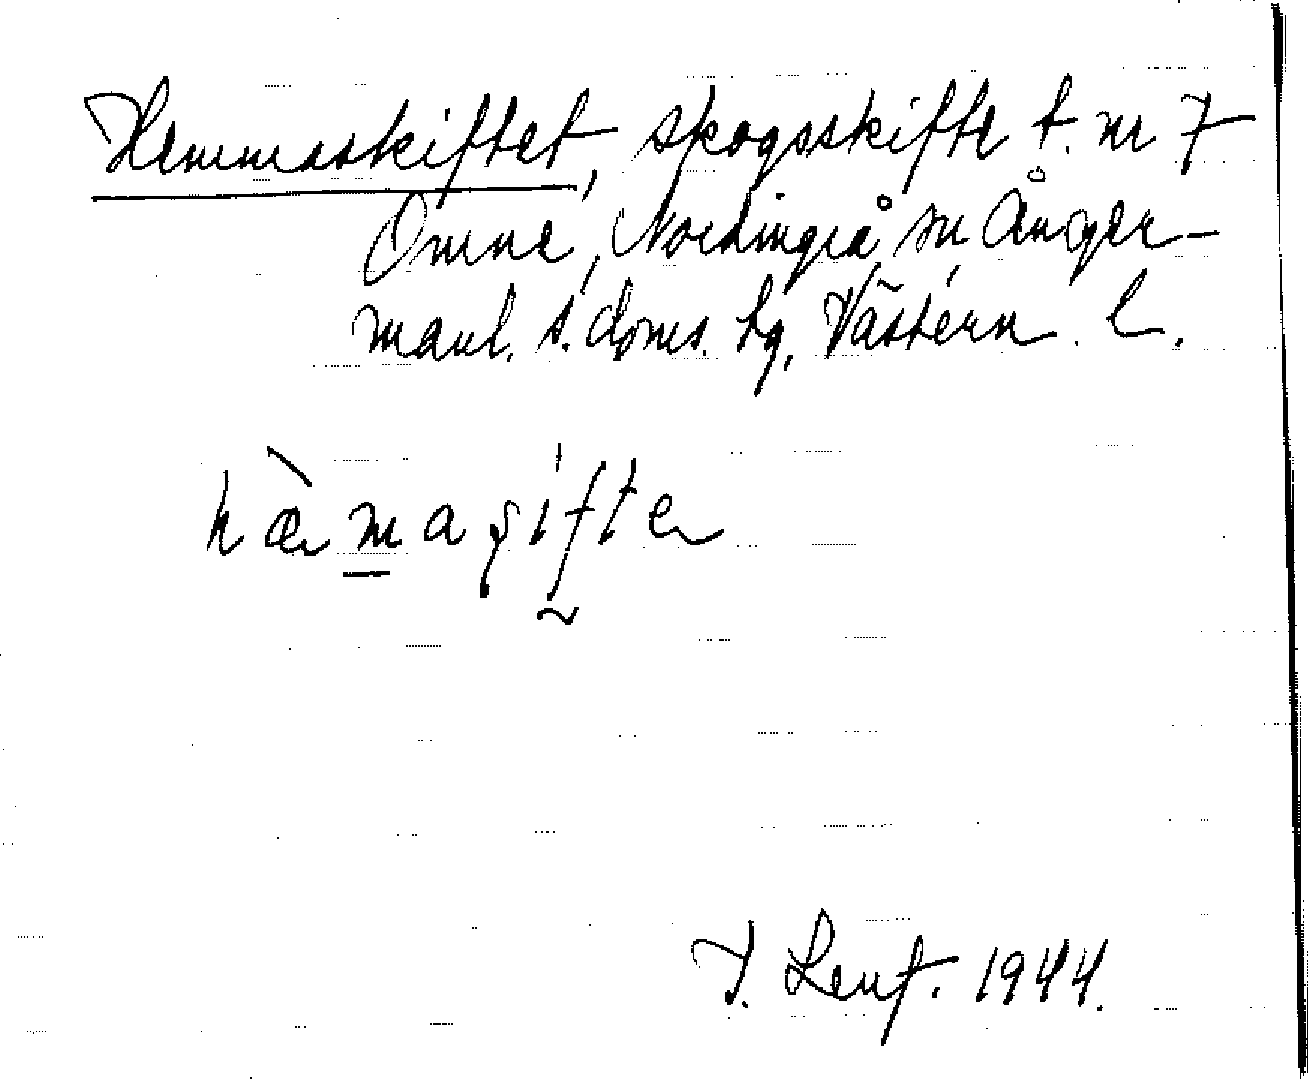 Hemmaskiftet, skogsskifte t. nr 7
Omne, Nordingrå sn Ånger-
manl. s. doms. tg, Västern. l.
hæ̀magifte
1944.